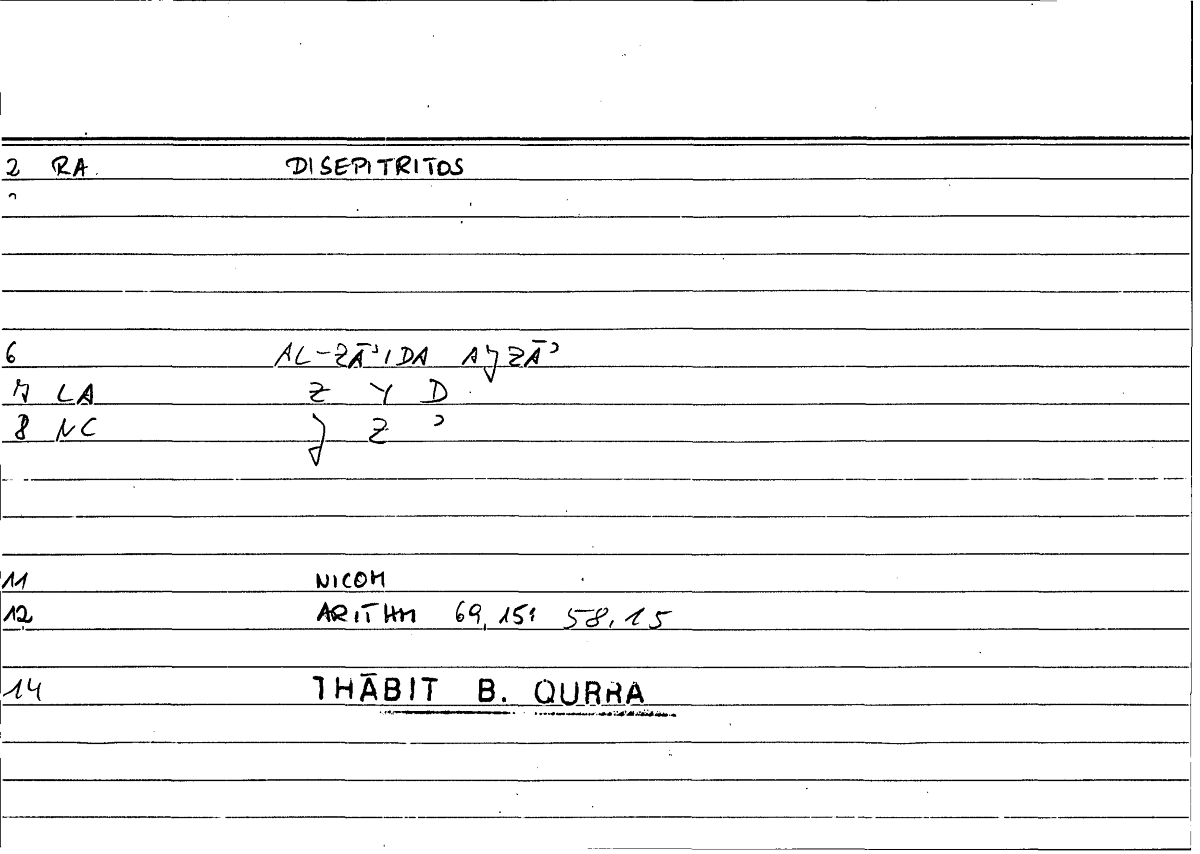 2 RA. DISEPITRITOS
6 AL-ZĀʾIDA AJZĀʾ
7 LA Z Y D
8 NC J Z ʾ
11 NICOM
12 ARITHM 69,15: 58,15
14 THĀBIT B. QURRA